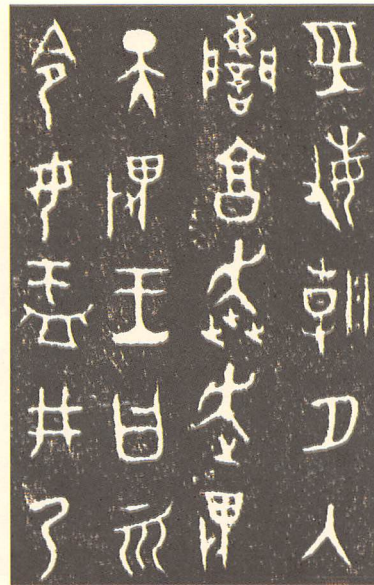 巠敏朝夕入
讕享奔走畏
天畏王曰而
令女盂井乃